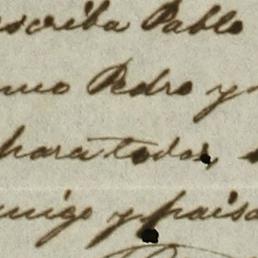 escriba Pablo
Pedro y
para todos
amigo y paisa